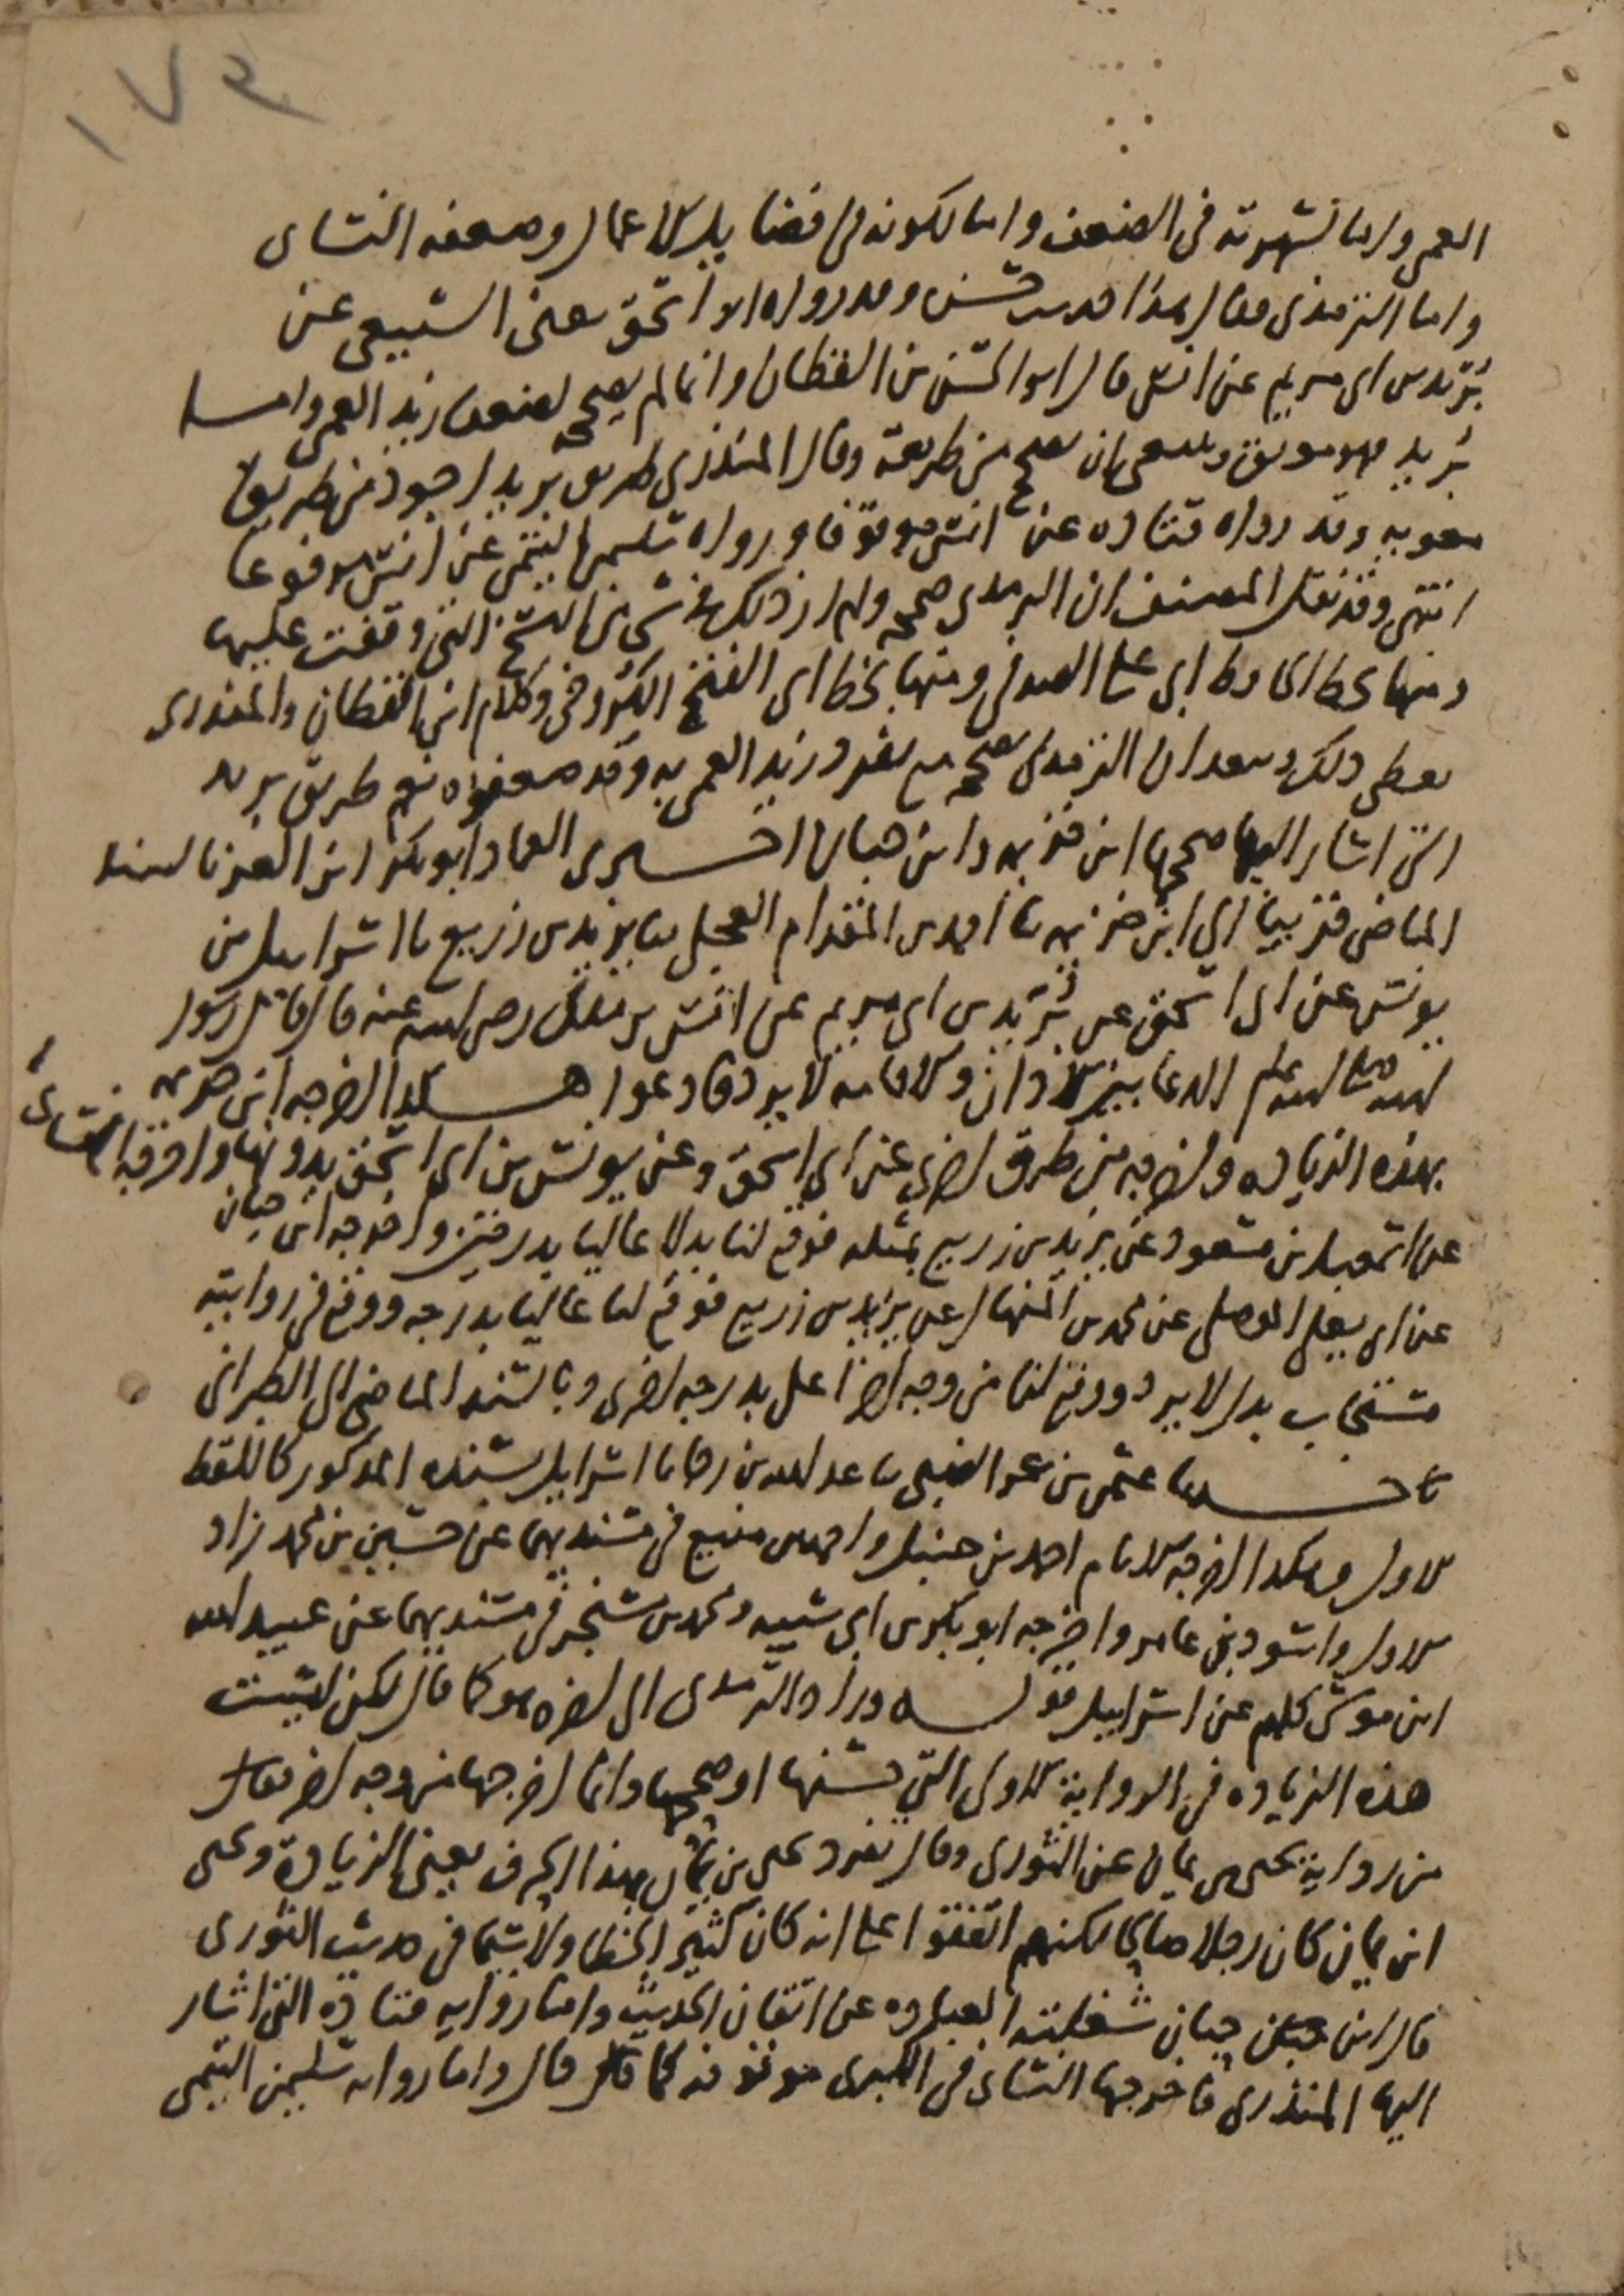 ١٧٤
العمى واما لشهرته في الضعف واما لكونه في فضايل الاعمال وضعفه النساى
واما الترمذى فقال هذا حديث حسن وقد رواه ابو اسحق يعنى السبيعي عن
بُرَيد بن ابى مريم عن انس قال ابو الحسن بن القطان وانما لم يصححه لضعف زيد العمى واما
بُرَيد فهو موثق وينبغى ان يصحح من طريقه وقال المنذرى طريق بريد اجود من طريق
معويه وقد رواه قتاده عن انس موقوفا ورواه سليمن التيمى عن انس مرفوعا
انتهى وقد نقل المصنف ان الترمذى صححه ولم ار ذلك في شى من النسخ التى وقفت عليها
ومنها بخط الحافظ ابى على الصدفى ومنها بخط ابى الفتح الكروخى وكلام ابن القطان والمنذرى
يعطى ذلك ويبعد ان الترمذى يصححه مع تفرد زيد العمى به وقد ضعفوه نعم طريق بريد
التى اشار اليها صححها ابن خزيمه وابن حبان اخبرنى العماد ابو بكر ابن العز بالسند
الماضى قريبا الى ابن خزيمه ثنا احمد بن المقدام العجلى ثنا يزيد بن زريع ثنا اسرايل بن
يونس عن ابى اسحق عن بُرَيد بن ابى مريم عن انس بن ملك رضى الله عنه قال قال رسول
الله صلى الله عليه وسلم الدعا بين الاذان والاقامه لا يرد فادعوا هكذا اخرجه ابن خزيمه
بهذه الزياده واخرجه من طرق اخرى عن ابى اسحق وعن يونس بن ابى اسحق بدونها واخرجه النساى
عن اسمعيل بن مسعود عن يزيد بن زريع بمثله فوقع لنا بدلا عاليا بدرجتين واخرجه ابن حبان
عن ابى يعلى الموصلى عن محمد بن المنهال عن يزيد بن زريع فوقع لنا عاليا بدرجه ووقع في روايته
مستجاب بدل لا يرد ووقع لنا من وجه اخر اعلى بدرجه اخرى وبالسند الماضى الى الطبرانى
ثنا عثمن بن عمر الضبى ثنا عبد الله بن رجا ثنا اسرايل بسنده المذكور كاللفظ
الاول وهكذا اخرجه الامام احمد بن حنبل واحمد بن منيع في مسنديهما عن حسين بن محمد زاد
الاول واسود بن عامر واخرجه ابو بكر بن ابى شيبه ومحمد بن سنجر في مسنديهما عن عبيد الله
ابن موسى كلهم عن اسرايل قوله وزاد الترمذى الى اخره هو كما قال لكن ليست
هذه الزياده في الرواية الاولى التى حسنها او صححها وانما اخرجها من وجه اخر فقال
من رواية يحيى بن يمان عن الثورى وقال تفرد يحيى بن يمان بهذا الحرف يعنى الزيادة ويحيى
ابن يمان كان رجلا صالحا لكنهم اتفقوا على انه كان كثير الخطا ولا سيما في حديث الثورى
قال ابن حبان شغلته العباده عن اتقان الحديث واما رواية قتاده التى اشار
اليها المنذرى فاخرجها النساى في الكبرى موقوفه كما قال واما رواية سليمن التيمى